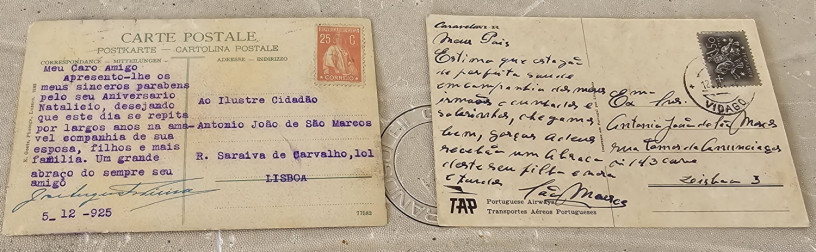 CARTE POSTALE
POSTKARTE — CARTOLINA POSTALE
CORRESPONDANCE - MITTEILUNGEN -
ADRESSE - INDIRIZZO
25 C
CORREIO
Meu Caro Amigo
Apresento-lhe os
meus sinceros parabens
pelo seu Aniversario
Natalicio, desejando
que este dia se repita
por largos anos na ama-
vel companhia de sua
esposa, filhos e mais
familia. Um grande
abraço do sempre seu
amigo
5_ 12 -925
Ao Ilustre Cidadão
Antonio João de São Marcos
R. Saraiva de Carvalho,101
LISBOA
77582
Meus Pais
Estimo que estejam
de perfeita saude
em companhia dos meus
irmãos cunhados e
sobrinhos, chegamos
bem, graças a deus
recebam um Abraço
deste seu filho e nora
São Marcos
Exmo
Ex. Snr.
Antonio João de São Marcos
rua
Lisboa 3
VIDAGO
TAP
Portuguese Airways
Transportes Aéreos Portugueses